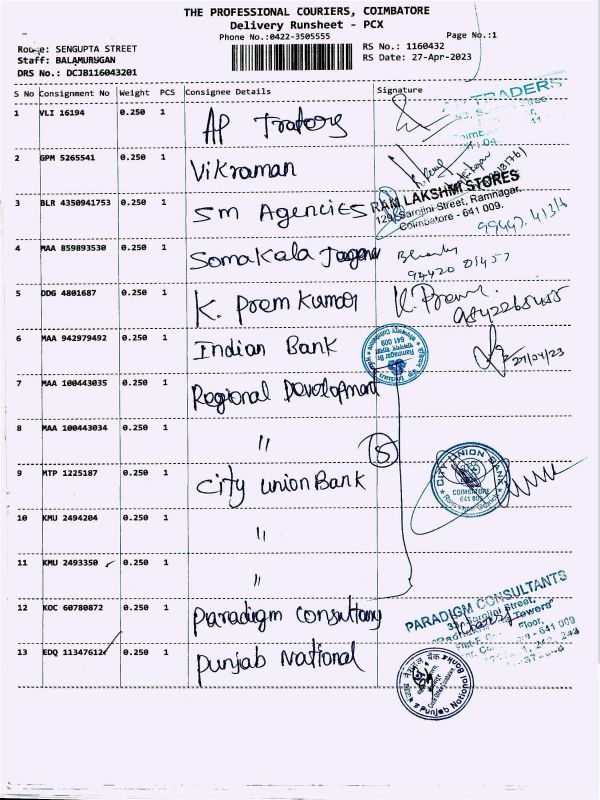 THE PROFESSIONAL COURIERS, COIMBATORE
Delivery Runsheet - PCX
Phone No.:0422-3505555 Page No.:1
Route: SENGUPTA STREET RS No.: 1160432
Staff: BALAMURUGAN RS Date: 27-Apr-2023
DRS No.: DCJB116043201
S No Consignment No Weight PCS Consignee Details Signature
1 VLI 16194 0.250 1 AP Traders
AP TRADERS
2 GPM 5265541 0.250 1 Vikraman
3 BLR 4350941753 0.250 1 SM Agencies
RAM LAKSHMI STORES
129, Sarojini Street, Ramnagar,
Coimbatore - 641 009.
99447 41314
4 MAA 859893530 0.250 1 Somakala
94420 01457
5 DDG 4801687 0.250 1 K. Prem Kumar
6 MAA 942979492 0.250 1 Indian Bank
27/04/23
7 MAA 100443035 0.250 1 Regional Development
8 MAA 100443034 0.250 1 "
5
9 MTP 1225187 0.250 1 City Union Bank
CITY UNION BANK
COIMBATORE
10 KMU 2494204 0.250 1 "
11 KMU 2493350 0.250 1 "
12 KDC 60780872 0.250 1 Paradigm Consultany
PARADIGM CONSULTANTS
13 EDQ 11347612 0.250 1 Punjab National
Punjab National Bank